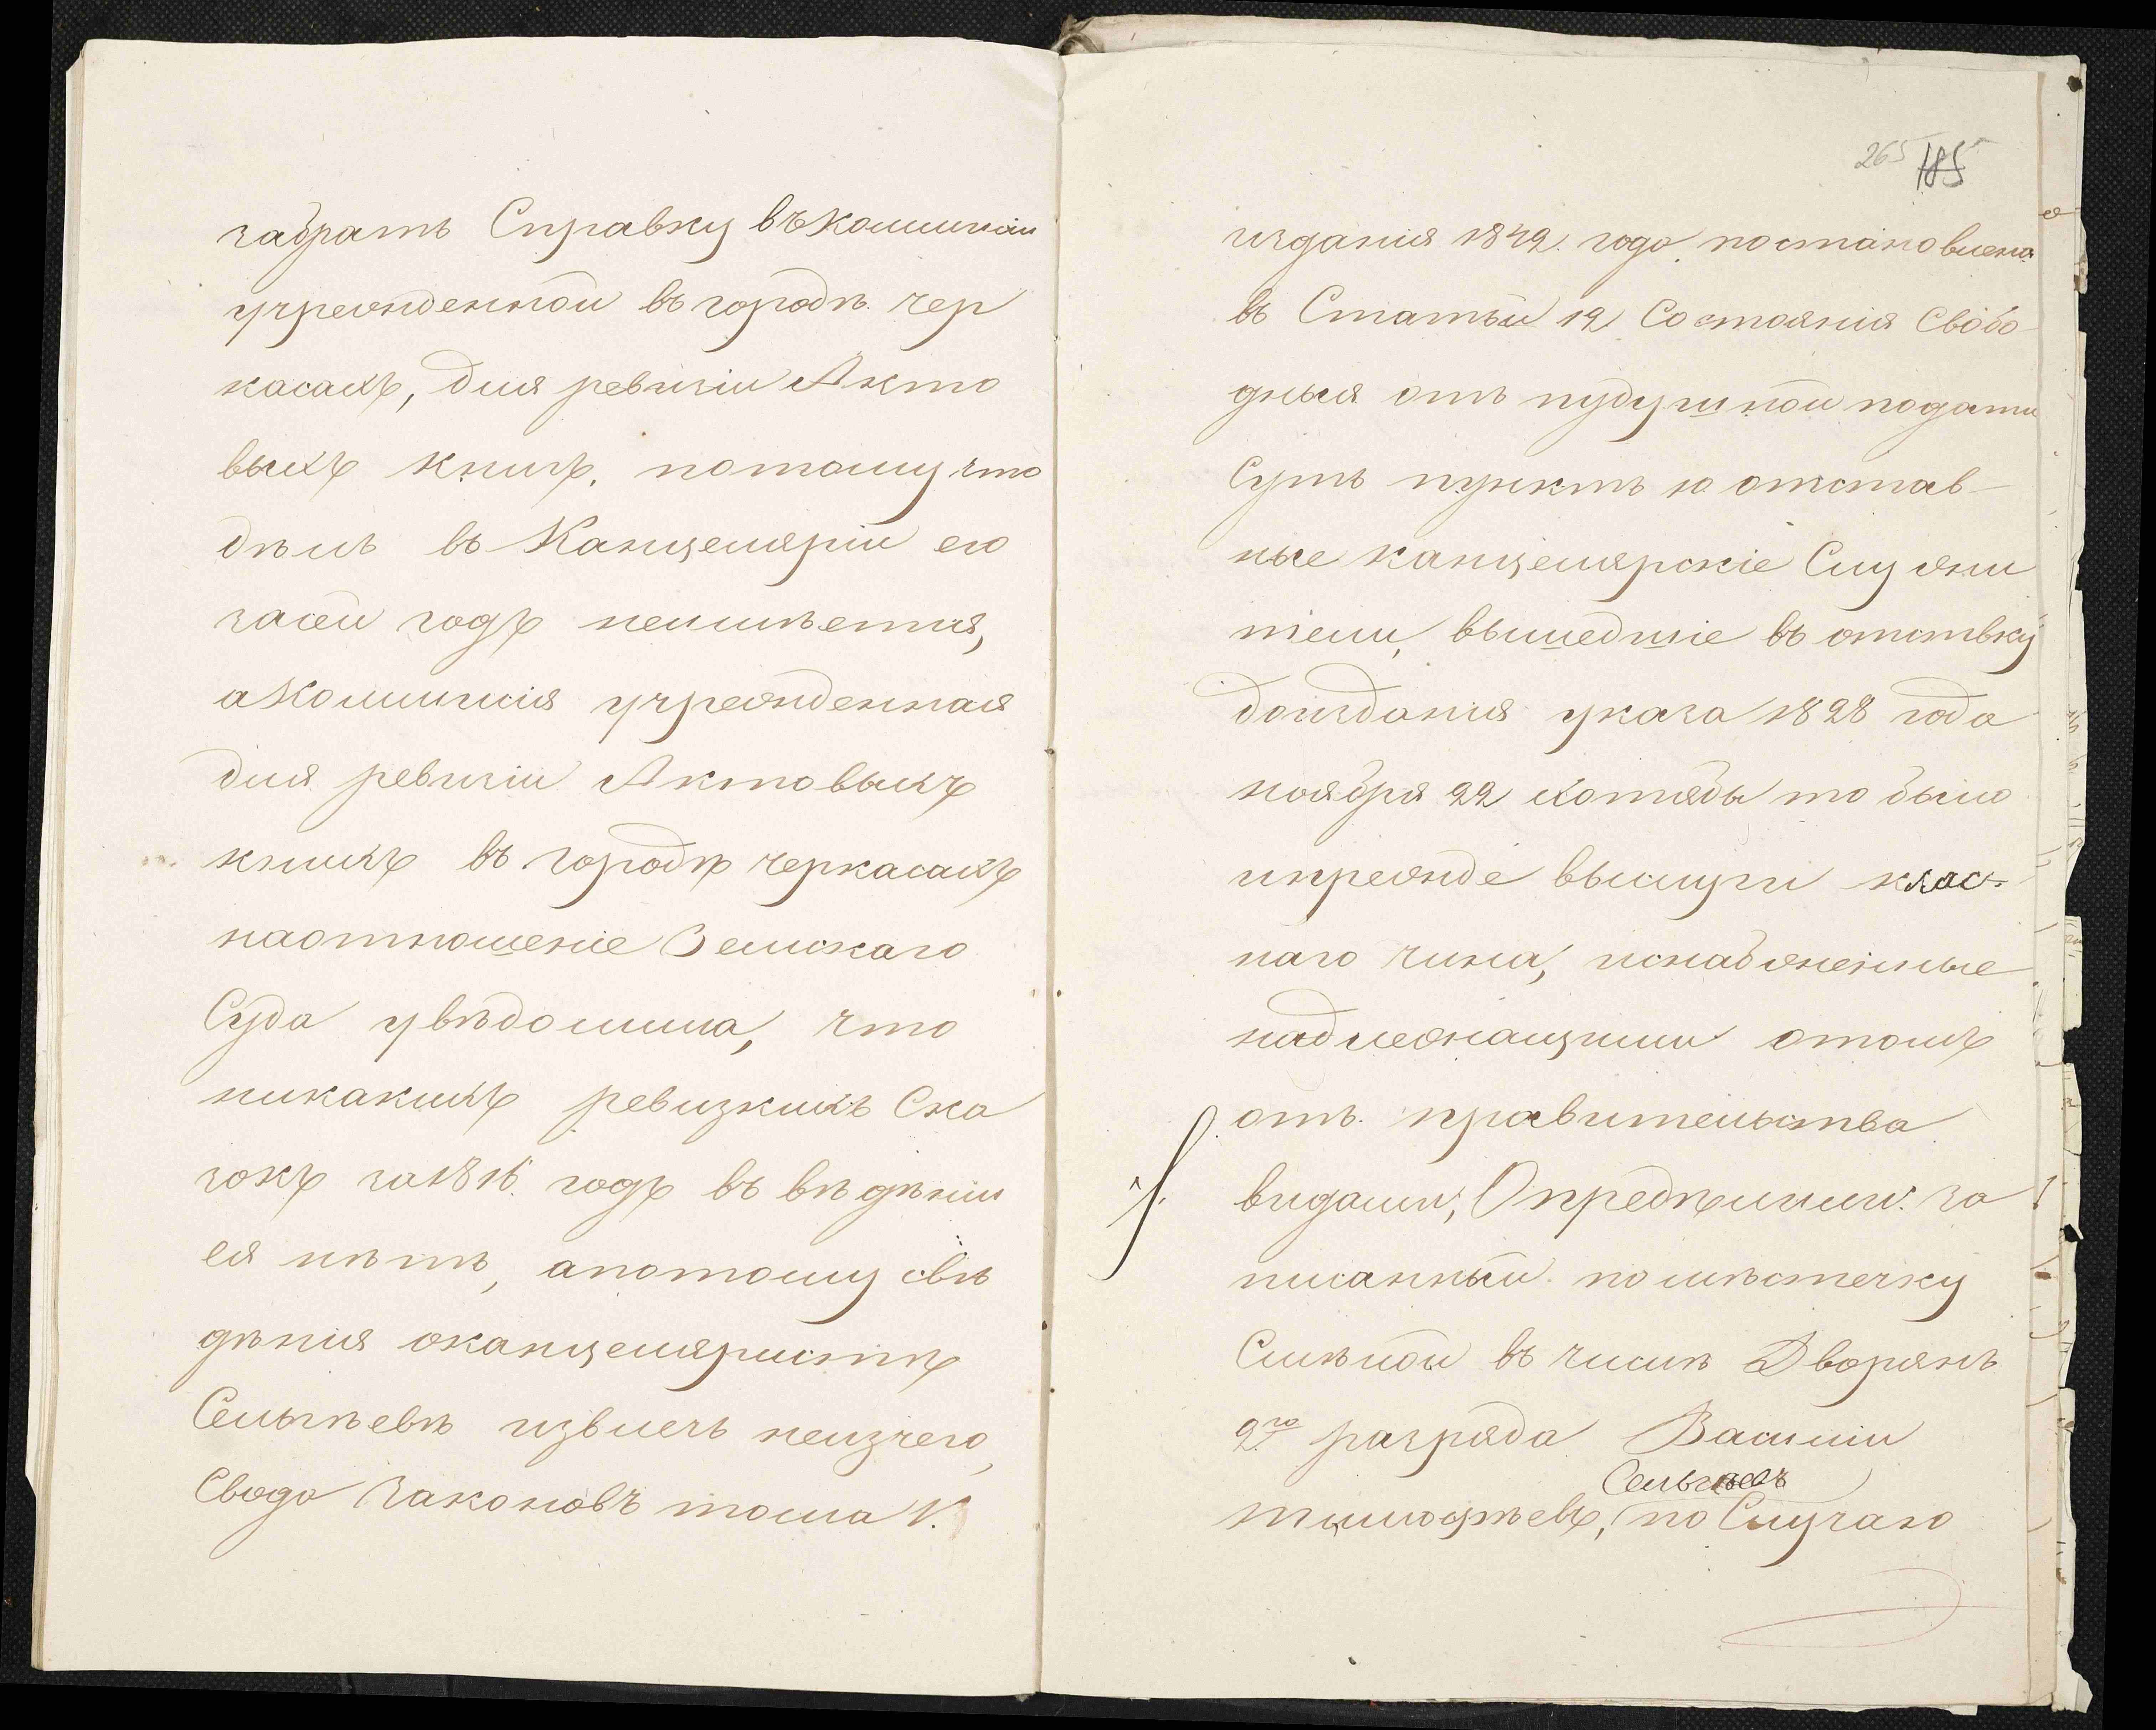 забрать Справку въ Коммисіи
учрежденной въ городѣ Чер
касахъ, для ревизіи Акто
выхъ книгъ, потому что
дѣлъ въ Канцеляріи его
засей годъ неимѣется,
а Коммисія учрежденная
для ревизіи Актовыхъ
книгъ въ городѣ Черкасахъ
наотношеніе Земскаго
Суда увѣдомила, что
никакихъ ревизкихъ Ска
зокъ за 1816 годъ въ вѣдѣніи
ея нѣтъ, а потому свѣ
дѣнія оканцеляристѣ
извлечь неизчего,
Свода Законовъ тома V.
265 185
изданія 1842. года постановлено
въ Статьи 12 Состоянія Свобо
дныя отъ подушной подати
Суть пунктъ 10 отстав-
ные канцелярскіе Служи
тели, вышедшіе въ отставку
доизданія указа 1828 года
ноября 22 хотябы то было
ипрежде выслуги клас-
наго чина, иснабженные
надлежащими отомъ
отъ правительства
видами; Опредѣлили: за
писанный по мѣстечку
Смѣлой въ числѣ Дворянъ
2го разряда Василій
Тимофѣевъ, по Случаю